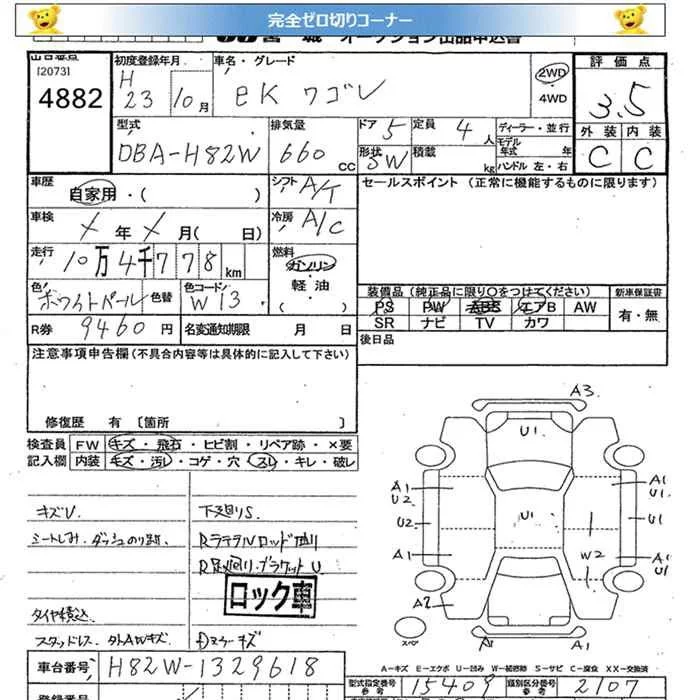 完全ゼロ切りコーナー
宮城 オークション出品申込書
出台番号
[2073]
4882
初度登録年月
H
23 10月
車名・グレード
eK ワゴン
2WD
・
4WD
評価点
3.5
外装 内装
C C
型式
DBA-H82W
排気量
660 cc
ドア 5
定員 4 人
形状 5W
積載 kg
ディーラー・並行
モデル年式 年
ハンドル 左・右
車歴
自家用・( )
シフト A/T
セールスポイント (正常に機能するものに限ります)
車検 メ 年 メ 月( 日)
冷房 A/C
走行 10万4千778km
燃料
ガソリン
・
軽油
・
( )
色 ホワイトパール 色替
色コード W13
R券 9460 円
名変通知期限 月 日
装備品 (純正品に限り〇をつけてください)
新車保証書
PS PW ABS エアB AW
SR ナビ TV カワ
有・無
後日品
注意事項申告欄(不具合内容等は具体的に記入して下さい)
修復歴 有 〔箇所 〕
検査員
記入欄
FW キズ・飛石・ヒビ割・リペア跡・×要
内装 キズ・汚レ・コゲ・穴・スレ・キレ・破レ
キズU.
下廻りS.
シートしみ.ダッシュのり跡.
Rラテラルロッド曲り
R足廻り.ブラケットU
ロック車
タイヤ積込
スタッドレス.外AWキズ
Dミラーキズ
A3
U1
A1
U2
A1
U1
U2
U1
U1
A1
W2
A1
U1
A2
スペア
A1
A1
A-キズ E-エクボ U-凹み W-補修跡 S-サビ C-腐食 XX-交換済
車台番号 H82W-1329618
登録番号
型式指定番号
参考
15409
類別区分番号
参考
2107